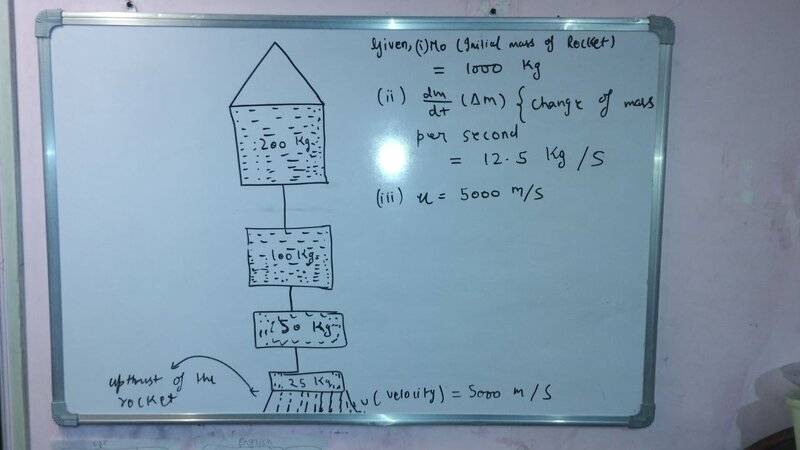 Given, (i) Mo (Initial mass of Rocket)
= 1000 Kg
(ii) dm/dt (Δm) { change of mass
per second
= 12.5 Kg/S
(iii) u = 5000 m/s
200 Kg
100 Kg
50 Kg
25 Kg
upthrust of the
rocket
u (velocity) = 5000 m/s
English